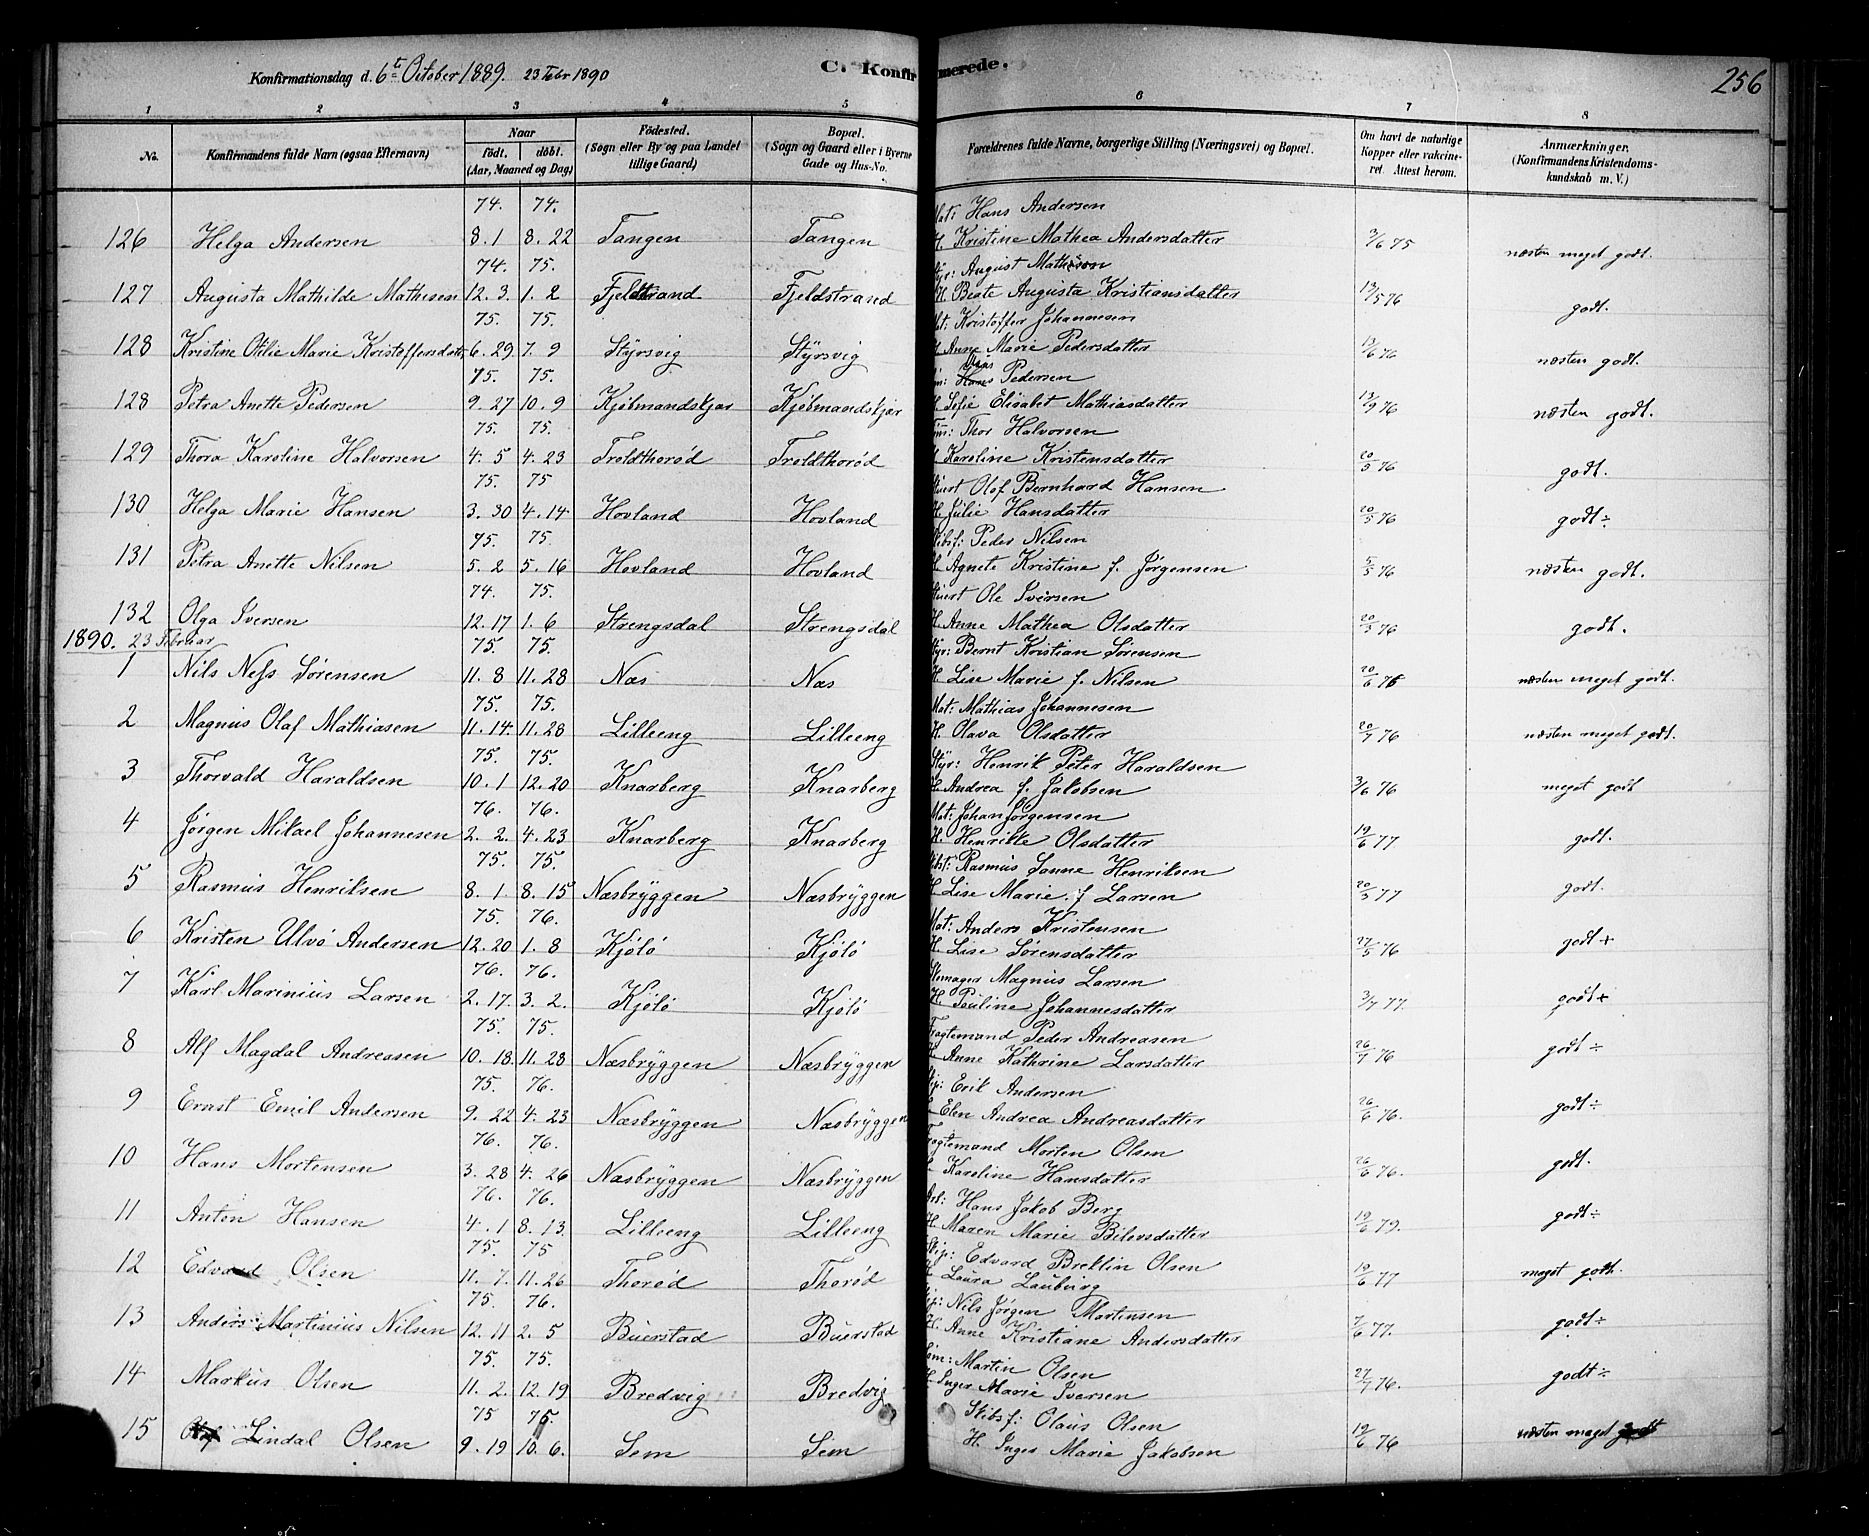 Konfirmationsdag d. 6te October 1889. 23 Febr 1890
C. Konfirmerede.
256
1 2 3 4 5 6 7 8
No. Konfirmandens fulde Navn (ogsaa Efternavn) Naar født. døbt. (Aar, Maaned og Dag) Fødested. (Sogn eller By og paa Landet tillige Gaard) Bopæl. (Sogn og Gaard eller i Byerne Gade og Hus-No. Forældrenes fulde Navne, borgerlige Stilling (Næringsvei) og Bopæl. Om havt de naturlige Kopper eller vakcineret. Attest herom. Anmærkninger. (Konfirmandens Kristendomskundskab m. V.)
74. 74. Mat: Hans Andersen
126 Helga Andersen 8.1 8.22 Tangen Tangen H. Kristine Mathea Andersdatter 3/6 75 næsten meget godt.
74. 75. Styr: August Mathison
127 Augusta Mathilde Mathisen 12.3. 1.2 Fjeldstrand Fjeldstrand H. Beate Augusta Kristiansdatter 13/5 76 godt.
75. 75. Mat: Kristoffer Johannesen
128 Kristine Otilie Marie Kristoffersdatter 6.29 7.9 Styrsvig Styrsvig H. Anne Marie Pedersdatter 13/6 76 næsten godt.
75. 75. Hans Pedersen
128 Petra Anette Pedersen 9.27 10.9 Kjøbmandskjær Kjøbmandskjær H. Sofie Elisabet Mathiasdatter 13/9 76 næsten godt.
75. 75. Tøm: Thor Halvorsen
129 Thora Karoline Halvorsen 4.5 4.23 Troldthorød Troldthorød H. Karoline Kristensdatter 20/5 76 godt.
75. 75 Stuert Olof Bernhard Hansen
130 Helga Marie Hansen 3.30 4.14 Hovland Hovland H. Julie Hansdatter 20/5 76 godt÷
75. 75. Skibsf: Peder Nilsen
131 Petra Anette Nilsen 5.2 5.16 Hovland Hovland H. Agnete Kristine f. Jørgensen 5/5 76 næsten godt.
74. 75. Stuert Ole Iversen
132 Olga Iversen 12.17 1.6 Strengsdal Strengsdal H. Anne Mathea Olsdatter 20/5 76 godt.
1890. 23 Februar 75. 75. Styr: Bernt Kristian Sørensen
1 Nils Ness Sørensen 11.8 11.28 Næs Næs H. Lise Marie f. Nilsen 20/6 76 næsten meget godt.
75. 75. Mat: Mathias Johannesen
2 Magnus Olaf Mathiasen 11.14. 11.28 Lilleeng Lilleeng H. Olava Olsdatter 20/7 76 næsten meget godt.
75. 75. Styr: Henrik Peter Haraldsen
3 Thorvald Haraldsen 10.1 12.20 Knarberg Knarberg H. Andrea f. Jakobsen 3/6 76 meget godt
76. 76. Mat: Johan Jørgensen
4 Jørgen Mikael Johannesen 2.2. 4.23 Knarberg Knarberg H. Henrikke Olsdatter 19/6 77 godt.
75. 75. Skbst: Rasmus Sanne Henriksen
5 Rasmus Henriksen 8.1 8.15 Næsbryggen Næsbryggen H. Lise Marie f Larsen 20/5 77 godt.
75. 76. Mat: Anders Kristensen
6 Kristen Ulvø Andersen 12.20 1.8 Kjølø Kjølø H. Lise Sørensdatter 27/5 76 godt+
76. 76. Skomager Magnus Larsen
7 Karl Marinius Larsen 2.17. 3.2. Kjølø Kjølø H. Pauline Johannesdatter 3/7 77. godt+
75. 75. Fragtemand Peder Andreasen
8 Alf Magdal Andreasen 10.18. 11.28 Næsbryggen Næsbryggen H. Anne Kathrine Larsdatter 26/7 76 godt÷
75. 76. Skip: Erik Andersen
9 Ernst Emil Andersen 9.22 4.23 Næsbryggen Næsbryggen H. Elen Andrea Andreasdatter 26/6 76. godt÷
76. 76. Fragtemand Morten Olsen
10 Hans Mortensen 3.28 4.26 Næsbryggen Næsbryggen H. Karoline Hansdatter 26/6 76. godt.
76. 76. Arb: Hans Jakob Berg
11 Anton Hansen 4.1 8.13. Lilleeng Lilleeng H. Maren Marie Bilevsdatter 19/6 79. godt÷
75. 75 Skip: Edvard Breklin Olsen
12 Edvard Olsen 11.7. 11.26 Thorød Thorød H. Laura Lauburg 19/6 77 meget godt.
75. 76. Skip: Nils Jørgen Mortensen
13 Anders Martinius Nilsen 12.11 2.5 Buerstad Buerstad H. Anne Kristiane Andersdatter 7/6 77. godt÷
75. 75. Tøm: Martin Olsen
14 Markus Olsen 11.2. 12.19 Bredvig Bredvig H. Inger Marie Iversen 27/7 76. godt÷
75 75. Skibsf: Olaus Olsen
15 Olaf Lindal Olsen 9.19 10.6. Sem Sem H. Inger Marie Jakobsen 19/6 76 næsten meget godt